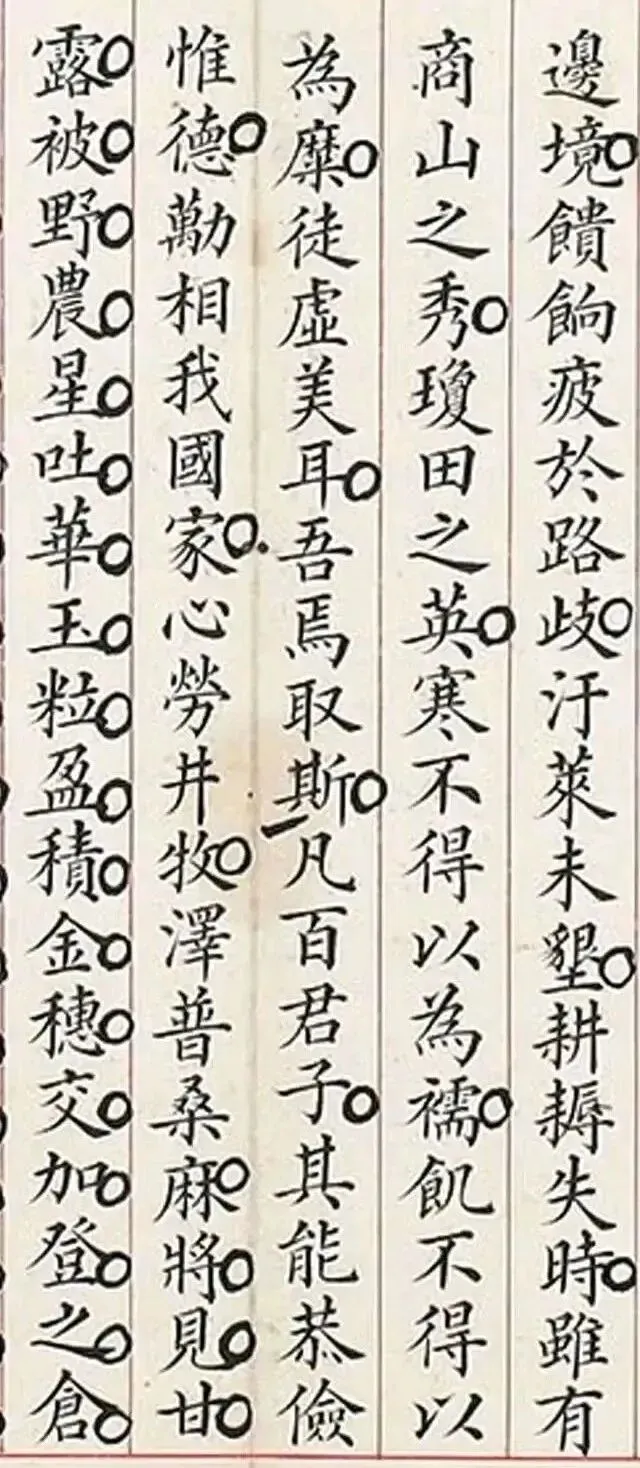 邊境饋餉疲於路歧汙萊未墾耕耨失時雖有
商山之秀瓊田之英寒不得以為襦飢不得以
為糜徒虛美耳吾焉取斯凡百君子其能恭儉
惟德勱相我國家心勞井牧澤普桑麻將見甘
露被野農星吐華玉粒盈積金穗交加登之倉